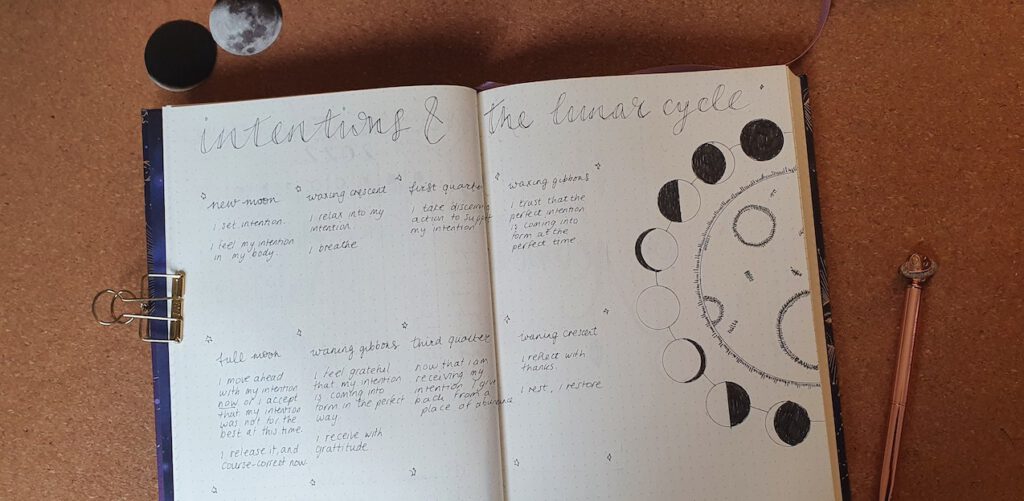 intentions & the lunar cycle
new moon
i set intention.
i feel my intention
in my body.
waxing crescent
i relax into my
intention.
i breathe
first quarter
i take discerning
action to support
my intention
waxing gibbons
i trust that the
perfect intention
is coming into
form at the
perfect time.
full moon
i move ahead
with my intention
now or i accept
that my intention
was not for the
best at this time.
i release it, and
course-correct now.
waning gibbons
i feel grateful
that my intention
is coming into
form in the perfect
way.
i receive with
grattitude.
third quarter
now that i am
receiving my
intention, i give
back from a
place of abundance
waning crescent
i reflect with
thanks.
i rest, i restore